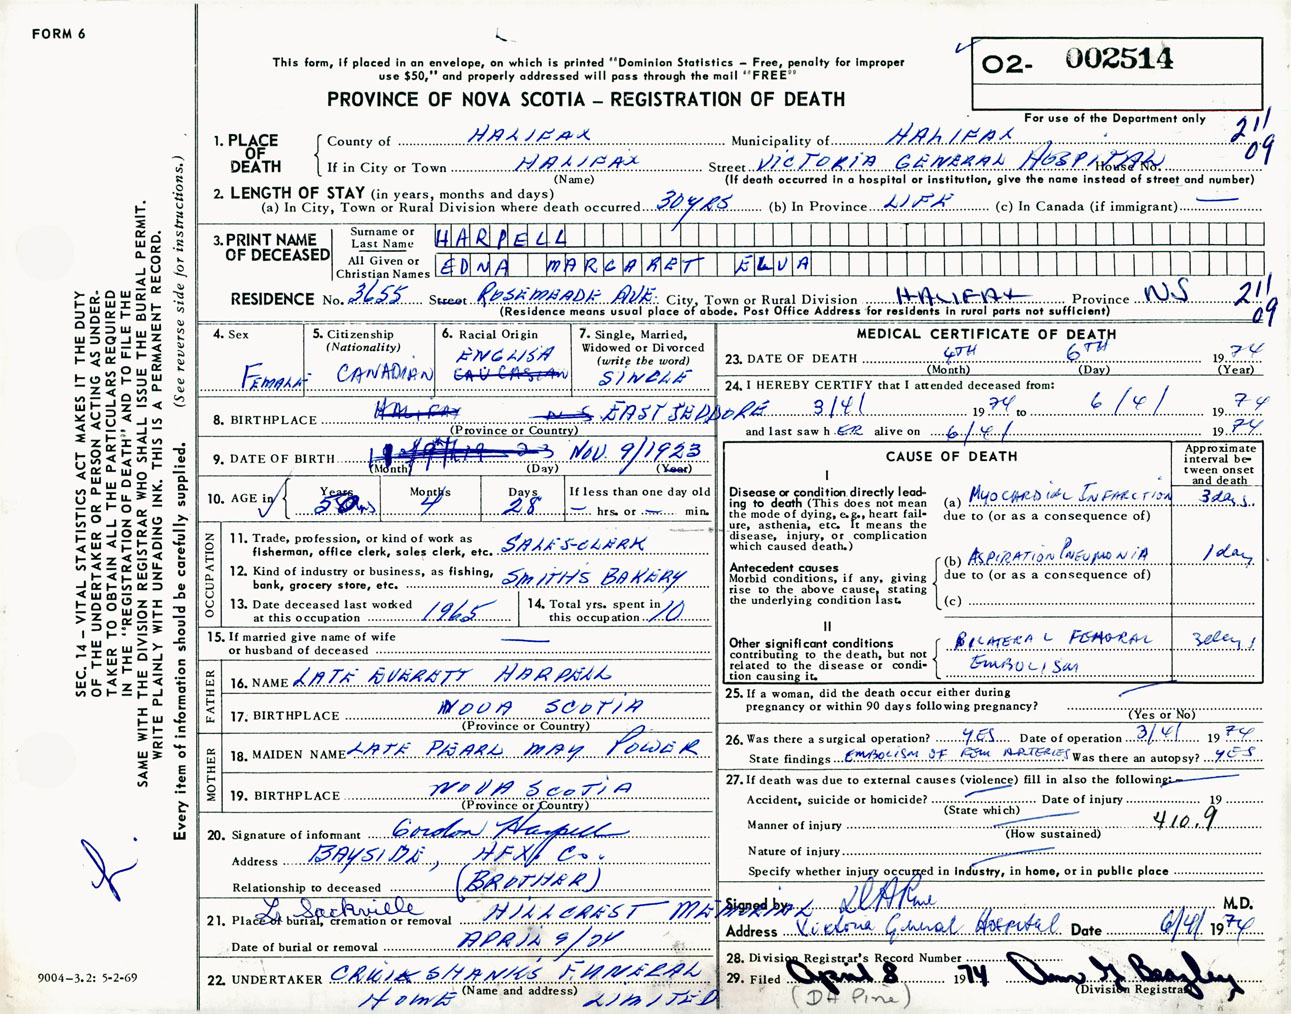 FORM 6
This form, if placed in an envelope, on which is printed "Dominion Statistics – Free, penalty for improper
use $50," and properly addressed will pass through the mail "FREE"
PROVINCE OF NOVA SCOTIA – REGISTRATION OF DEATH
02- 002514
For use of the Department only
211
09
1. PLACE OF DEATH
County of HALIFAX Municipality of HALIFAX
If in City or Town HALIFAX Street VICTORIA GENERAL HOSPITAL House No.
(Name) (If death occurred in a hospital or institution, give the name instead of street and number)
2. LENGTH OF STAY (in years, months and days)
(a) In City, Town or Rural Division where death occurred 30 YRS (b) In Province LIFE (c) In Canada (if immigrant) —
3. PRINT NAME OF DECEASED
Surname or Last Name HARPELL
All Given or Christian Names EDNA MARGARET ELVA
RESIDENCE No. 3655 Street ROSEMEADE AVE. City, Town or Rural Division HALIFAX Province NS
211
09
(Residence means usual place of abode. Post Office Address for residents in rural parts not sufficient)
4. Sex
FEMALE
5. Citizenship
(Nationality)
CANADIAN
6. Racial Origin
ENGLISH
CAUCASIAN
7. Single, Married,
Widowed or Divorced
(write the word)
SINGLE
8. BIRTHPLACE HALIFAX N S EAST JEDDORE
(Province or Country)
9. DATE OF BIRTH NOV. 9/1923
(Month) (Day) (Year)
10. AGE in
Years 50
Months 4
Days 28
If less than one day old
— hrs. or — min.
OCCUPATION
11. Trade, profession, or kind of work as
fisherman, office clerk, sales clerk, etc. SALES-CLERK
12. Kind of industry or business, as fishing,
bank, grocery store, etc. SMITHS BAKERY
13. Date deceased last worked
at this occupation 1965
14. Total yrs. spent in
this occupation 10
15. If married give name of wife
or husband of deceased —
FATHER
16. NAME LATE EVERETT HARPELL
17. BIRTHPLACE NOVA SCOTIA
(Province or Country)
MOTHER
18. MAIDEN NAME LATE PEARL MAY POWER
19. BIRTHPLACE NOVA SCOTIA
(Province or Country)
20. Signature of informant Gordon Harpell
Address BAYSIDE, HFX. CO.
Relationship to deceased (BROTHER)
L. Sackville
21. Place of burial, cremation or removal HILLCREST MEMORIAL
Date of burial or removal APRIL 9/74
22. UNDERTAKER CRUIKSHANKS FUNERAL
(Name and address)
HOME LIMITED
MEDICAL CERTIFICATE OF DEATH
23. DATE OF DEATH 4TH 6TH 1974
(Month) (Day) (Year)
24. I HEREBY CERTIFY that I attended deceased from:
3/4/ 1974 to 6/4/ 1974
and last saw hER alive on 6/4/ 1974
CAUSE OF DEATH
Approximate interval between onset and death
I
Disease or condition directly leading to death (This does not
mean the mode of dying, e.g., heart failure, asthenia, etc. It means the
disease, injury, or complication
which caused death.)
(a) MYOCARDIAL INFARCTION 3 days.
due to (or as a consequence of)
Antecedent causes
Morbid conditions, if any, giving
rise to the above cause, stating
the underlying condition last.
(b) ASPIRATION PNEUMONIA 1 day
due to (or as a consequence of)
(c)
II
Other significant conditions
contributing to the death, but not
related to the disease or condition causing it.
BILATERAL FEMORAL 3 days
EMBOLISM
25. If a woman, did the death occur either during
pregnancy or within 90 days following pregnancy?
(Yes or No)
26. Was there a surgical operation? YES Date of operation 3/4/ 1974
State findings EMBOLISM OF FEM ARTERIES Was there an autopsy? YES
27. If death was due to external causes (violence) fill in also the following:
Accident, suicide or homicide? Date of injury 19
(State which)
Manner of injury 410.9
(How sustained)
Nature of injury
Specify whether injury occurred in industry, in home, or in public place
Signed by DHPine M.D.
Address Victoria General Hospital Date 6/4/ 1974
28. Division Registrar's Record Number
29. Filed April 8 1974
(Division Registrar)
(DH Pine)
SEC. 14 – VITAL STATISTICS ACT MAKES IT THE DUTY
OF THE UNDERTAKER OR PERSON ACTING AS UNDER-
TAKER TO OBTAIN ALL THE PARTICULARS REQUIRED
IN THE "REGISTRATION OF DEATH" AND TO FILE THE
SAME WITH THE DIVISION REGISTRAR WHO SHALL ISSUE THE BURIAL PERMIT.
WRITE PLAINLY WITH UNFADING INK. THIS IS A PERMANENT RECORD.
Every item of information should be carefully supplied. (See reverse side for instructions.)
9004-3.2: 5-2-69